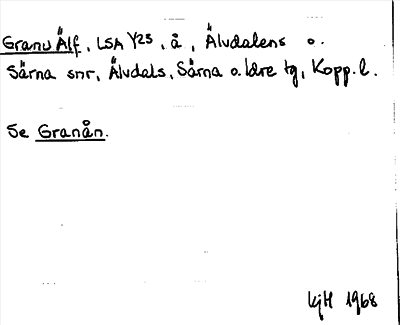 Granu Älf, LSA Y23, å, Älvdalens o.
Särna snr, Älvdals, Särna o. Idre tg, Kopp. l.
Se Granån.
KjH 1968